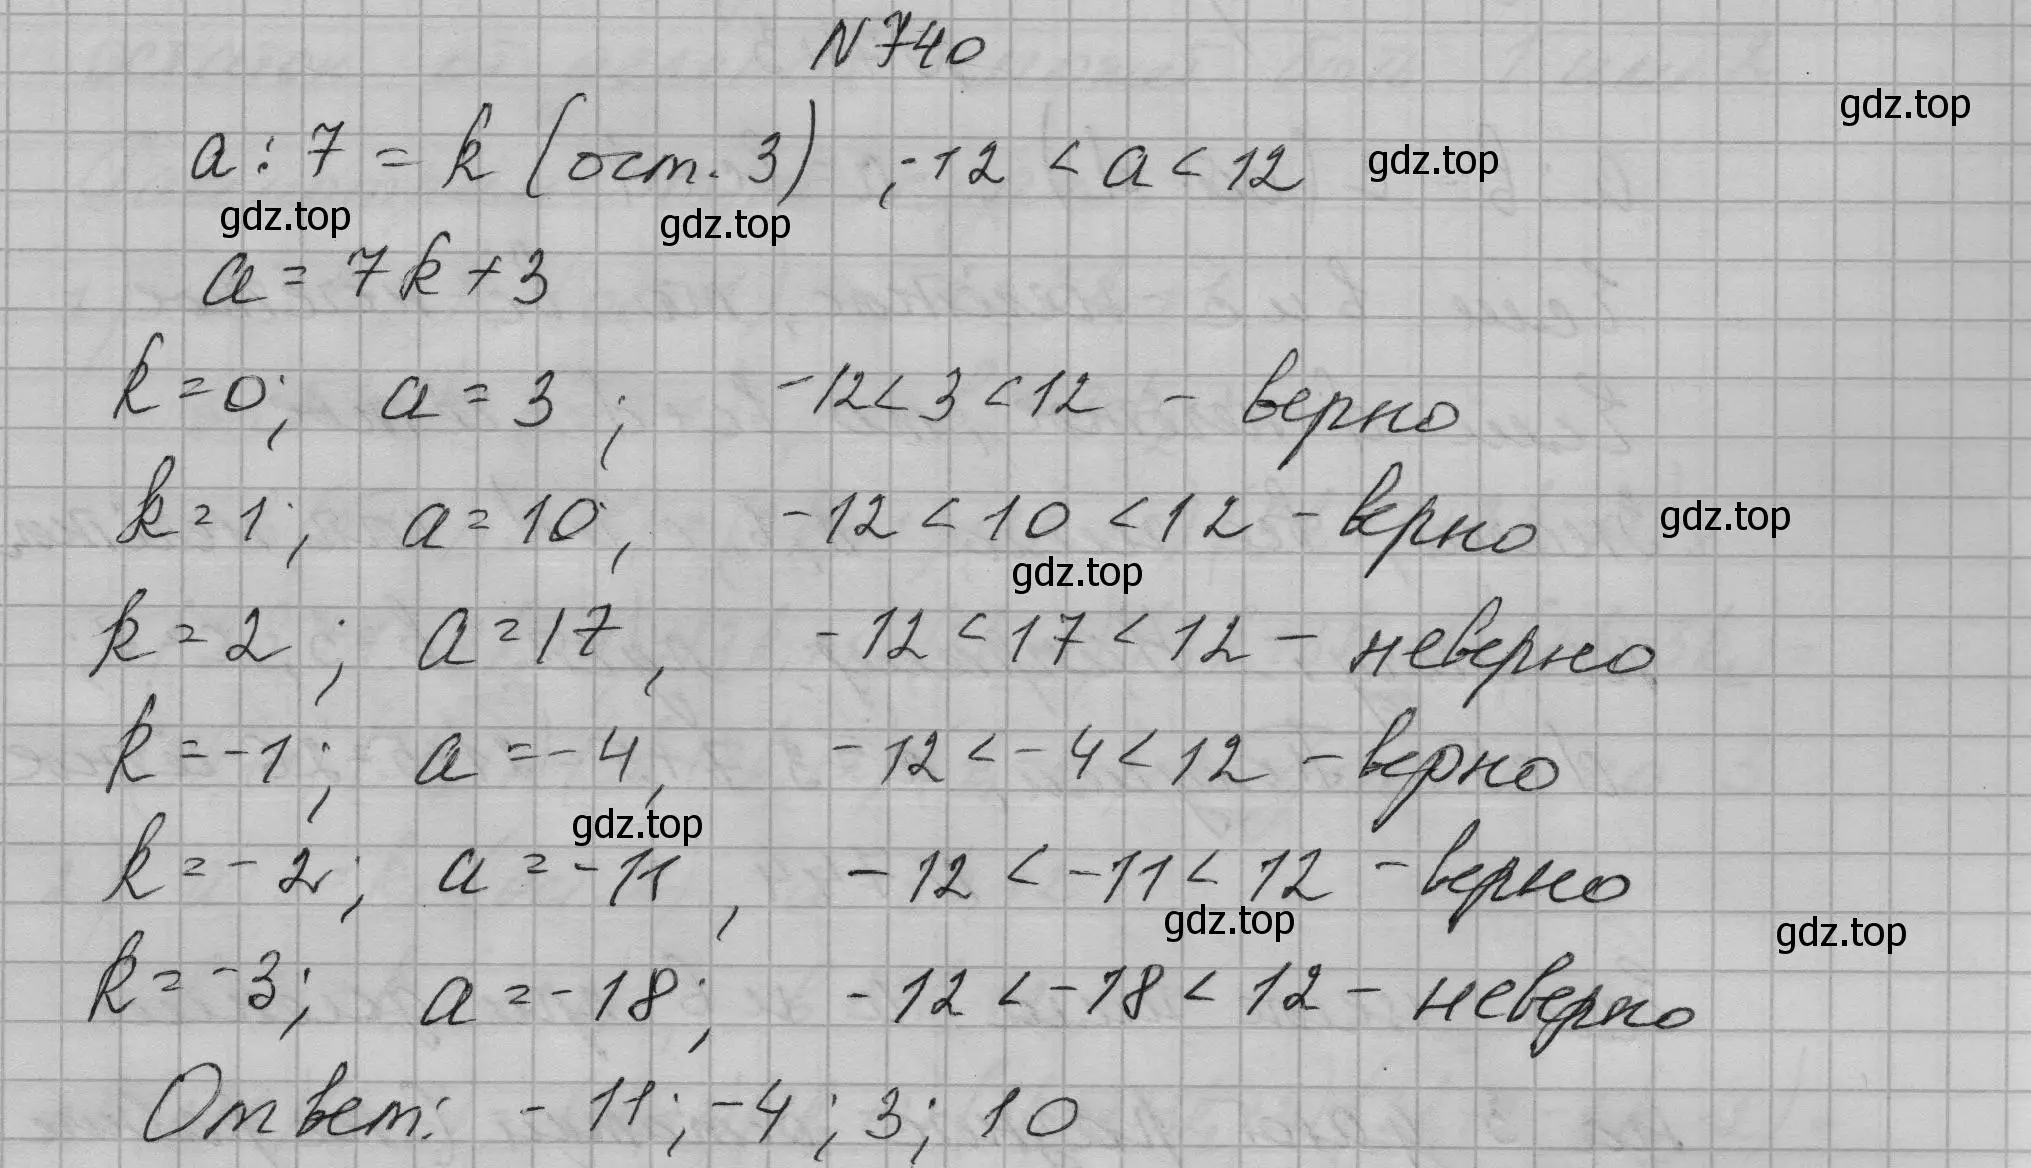 N 740
gdz.top
a : 7 = k (ост. 3) ; -12 < a < 12 gdz.top
gdz.top gdz.top
a = 7k + 3
k = 0; a = 3 ; -12 < 3 < 12 - верно
k = 1; a = 10, -12 < 10 < 12 - верно gdz.top
gdz.top
k = 2 ; a = 17, -12 < 17 < 12 - неверно
k = -1; a = -4, -12 < -4 < 12 - верно
gdz.top
k = -2; a = -11, -12 < -11 < 12 - верно
gdz.top gdz.top
k = -3; a = -18; -12 < -18 < 12 - неверно
Ответ: -11; -4; 3; 10